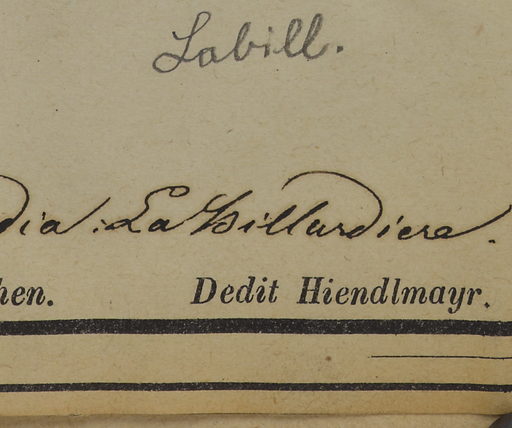 Labill.
dia: La Billardiere.
hen. Dedit Hiendlmayr.